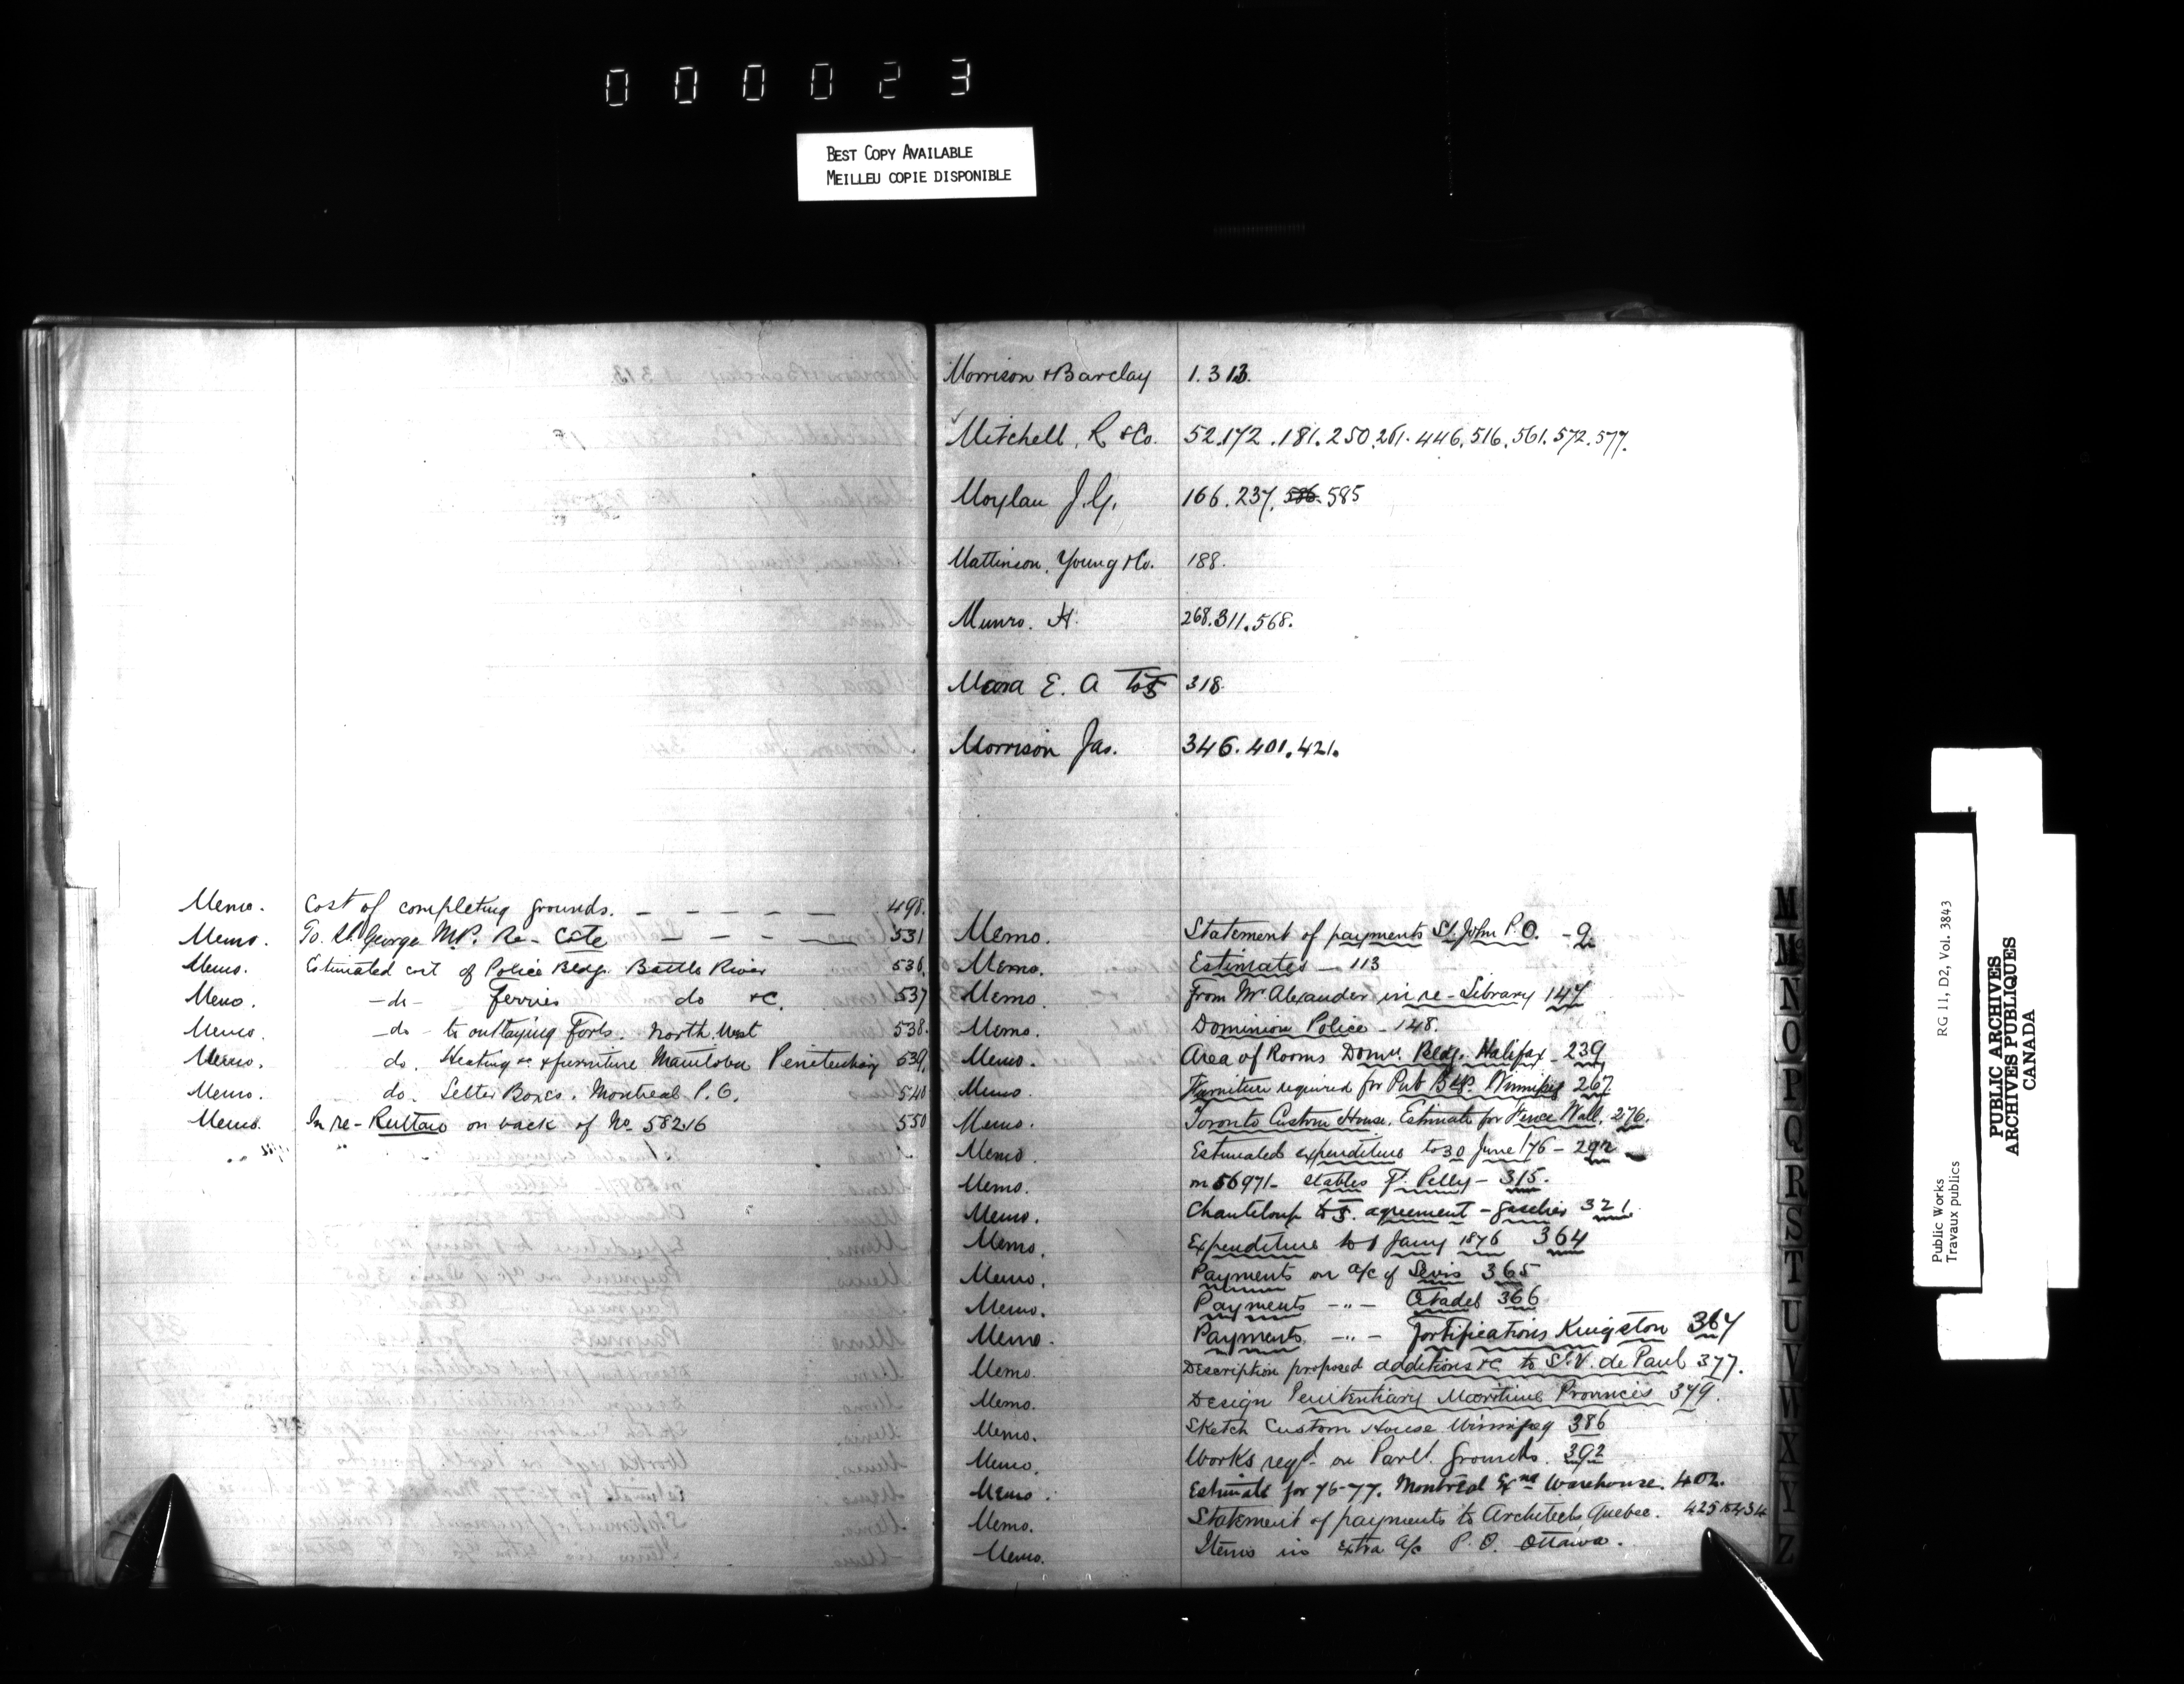 000023
BEST COPY AVAILABLE
MEILLEU COPIE DISPONIBLE
Memo. Cost of completing grounds. — — — — — 498.
Memo. To St. George M.P. Re - Côte — — - — 531
Memo. Estimated cost of Police Bldg. Battle River 536.
Memo. -do- Ferries do &c. 537
Memo. -do- to outlaying Forts. North West 538.
Memo. do. Heating &c &furniture Manitoba Penitentiary 539.
Memo. do. Letter Boxes. Montreal P.O. 540
Memo. In re- Ruttan on back of No. 58216 550
Morrison &Barclay 1. 313.
Mitchell, R &Co. 52.172.181.250.261.446.516.561.572.577.
Moylan J.G. 166.237. 586. 585
Mattinson, Young &Co. 188.
Munro. H. 268.311.568.
Mara E. A 318.
Morrison Jas. 346.401.421.
Memo. Statement of payments St. John P.O. - 9.
Memo. Estimates — 113
Memo. From Mr Alexander in re - Library 147
Memo. Dominion Police - 148.
Memo. Area of Rooms Domn. Bldg. Halifax - 239
Memo. Furniture required for Pub Bldg. Winnipeg 267
Memo. Toronto Custom House. Estimate for Fence Wall. 276.
Memo. Estimated expenditure to 30 June /76 - 292
Memo. on 56971 - stables Ft. Pelly - 315.
Memo. Chanteloup agreement - gaselier 321.
Memo. Expenditure to 1 Jany 1876 364
Memo. Payments on a/c of Levis 365
Memo. Payments -"- Citadel 366
Memo. Payments. -"- Fortifications Kingston 367
Memo. Description proposed additions &c to St. V. de Paul 377.
Memo. Design Penitentiary Maritime Provinces 379.
Memo. Sketch Custom House Winnipeg 386
Memo. Works reqd. on Parlt. grounds. 392
Memo. Estimate for 76-77. Montreal Exg Warehouse. 402.
Memo. Statement of payments to Architects Quebec. 425
Memo. Items in Extra a/c P.O. Ottawa. 434
M
Mc
N
O
P
Q
R
S
T
U
V
W
X
Y
Z
Public Works
Travaux publics
RG 11, D2, Vol. 3843
PUBLIC ARCHIVES
ARCHIVES PUBLIQUES
CANADA